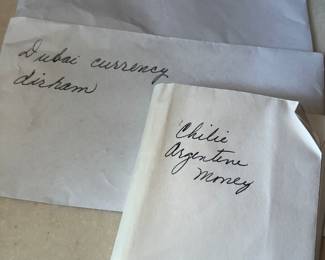 Dubai currency
dirham
Chilie
Argentine
Money